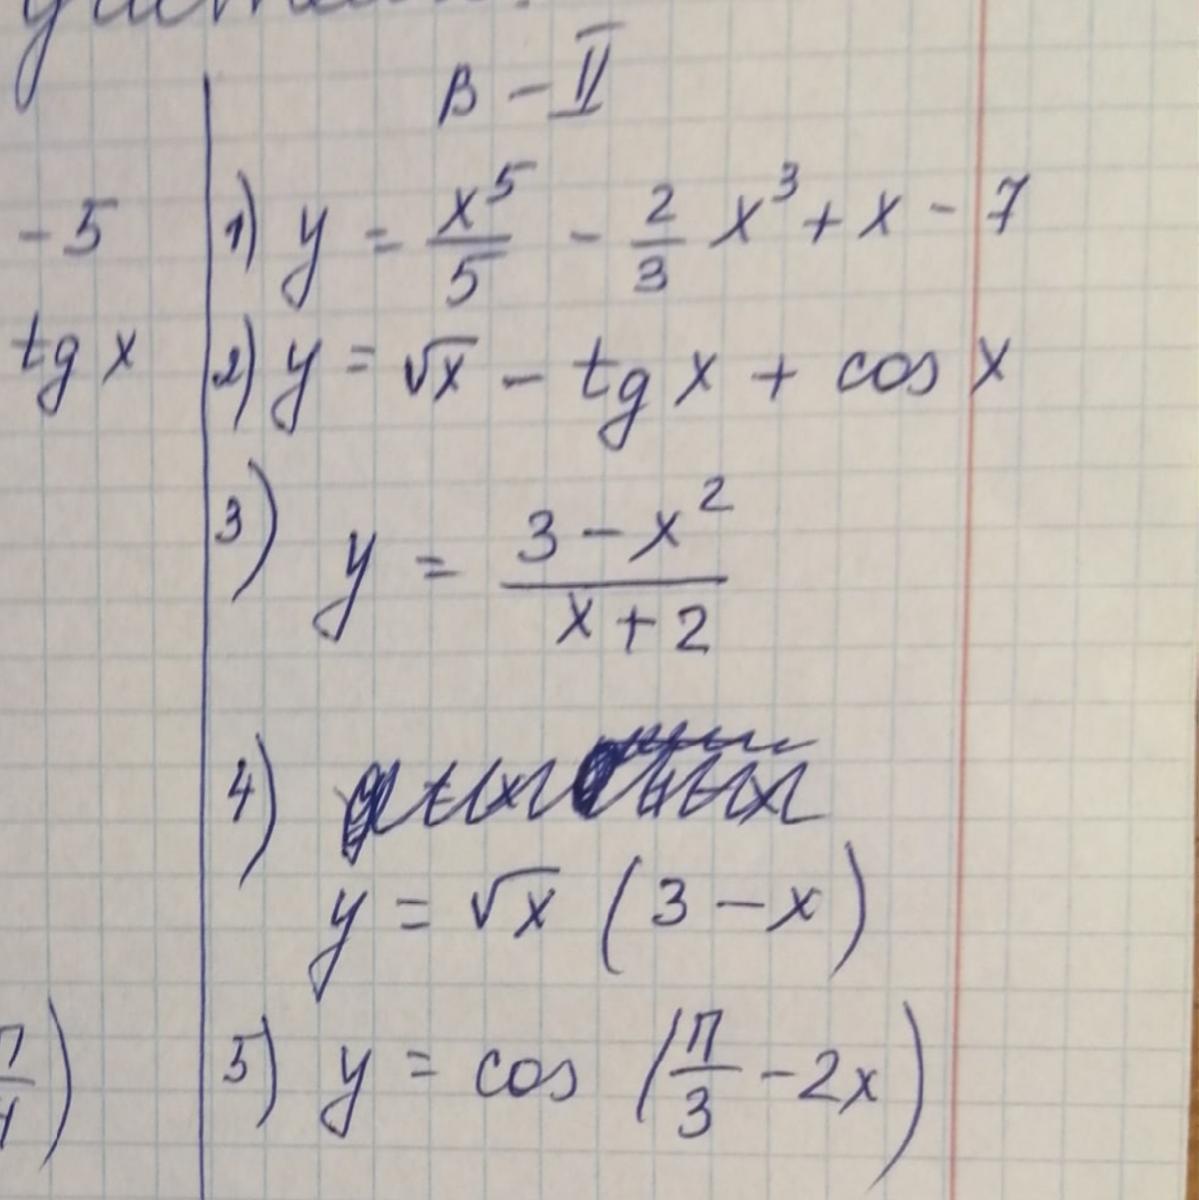 В - II
- 5
1) y = x⁵/5 - 2/3 x³ + x - 7
tg x
2) y = √x - tg x + cos x
3) y = (3 - x²)/(x + 2)
4)
y = √x (3 - x)
5) y = cos (π/3 - 2x)